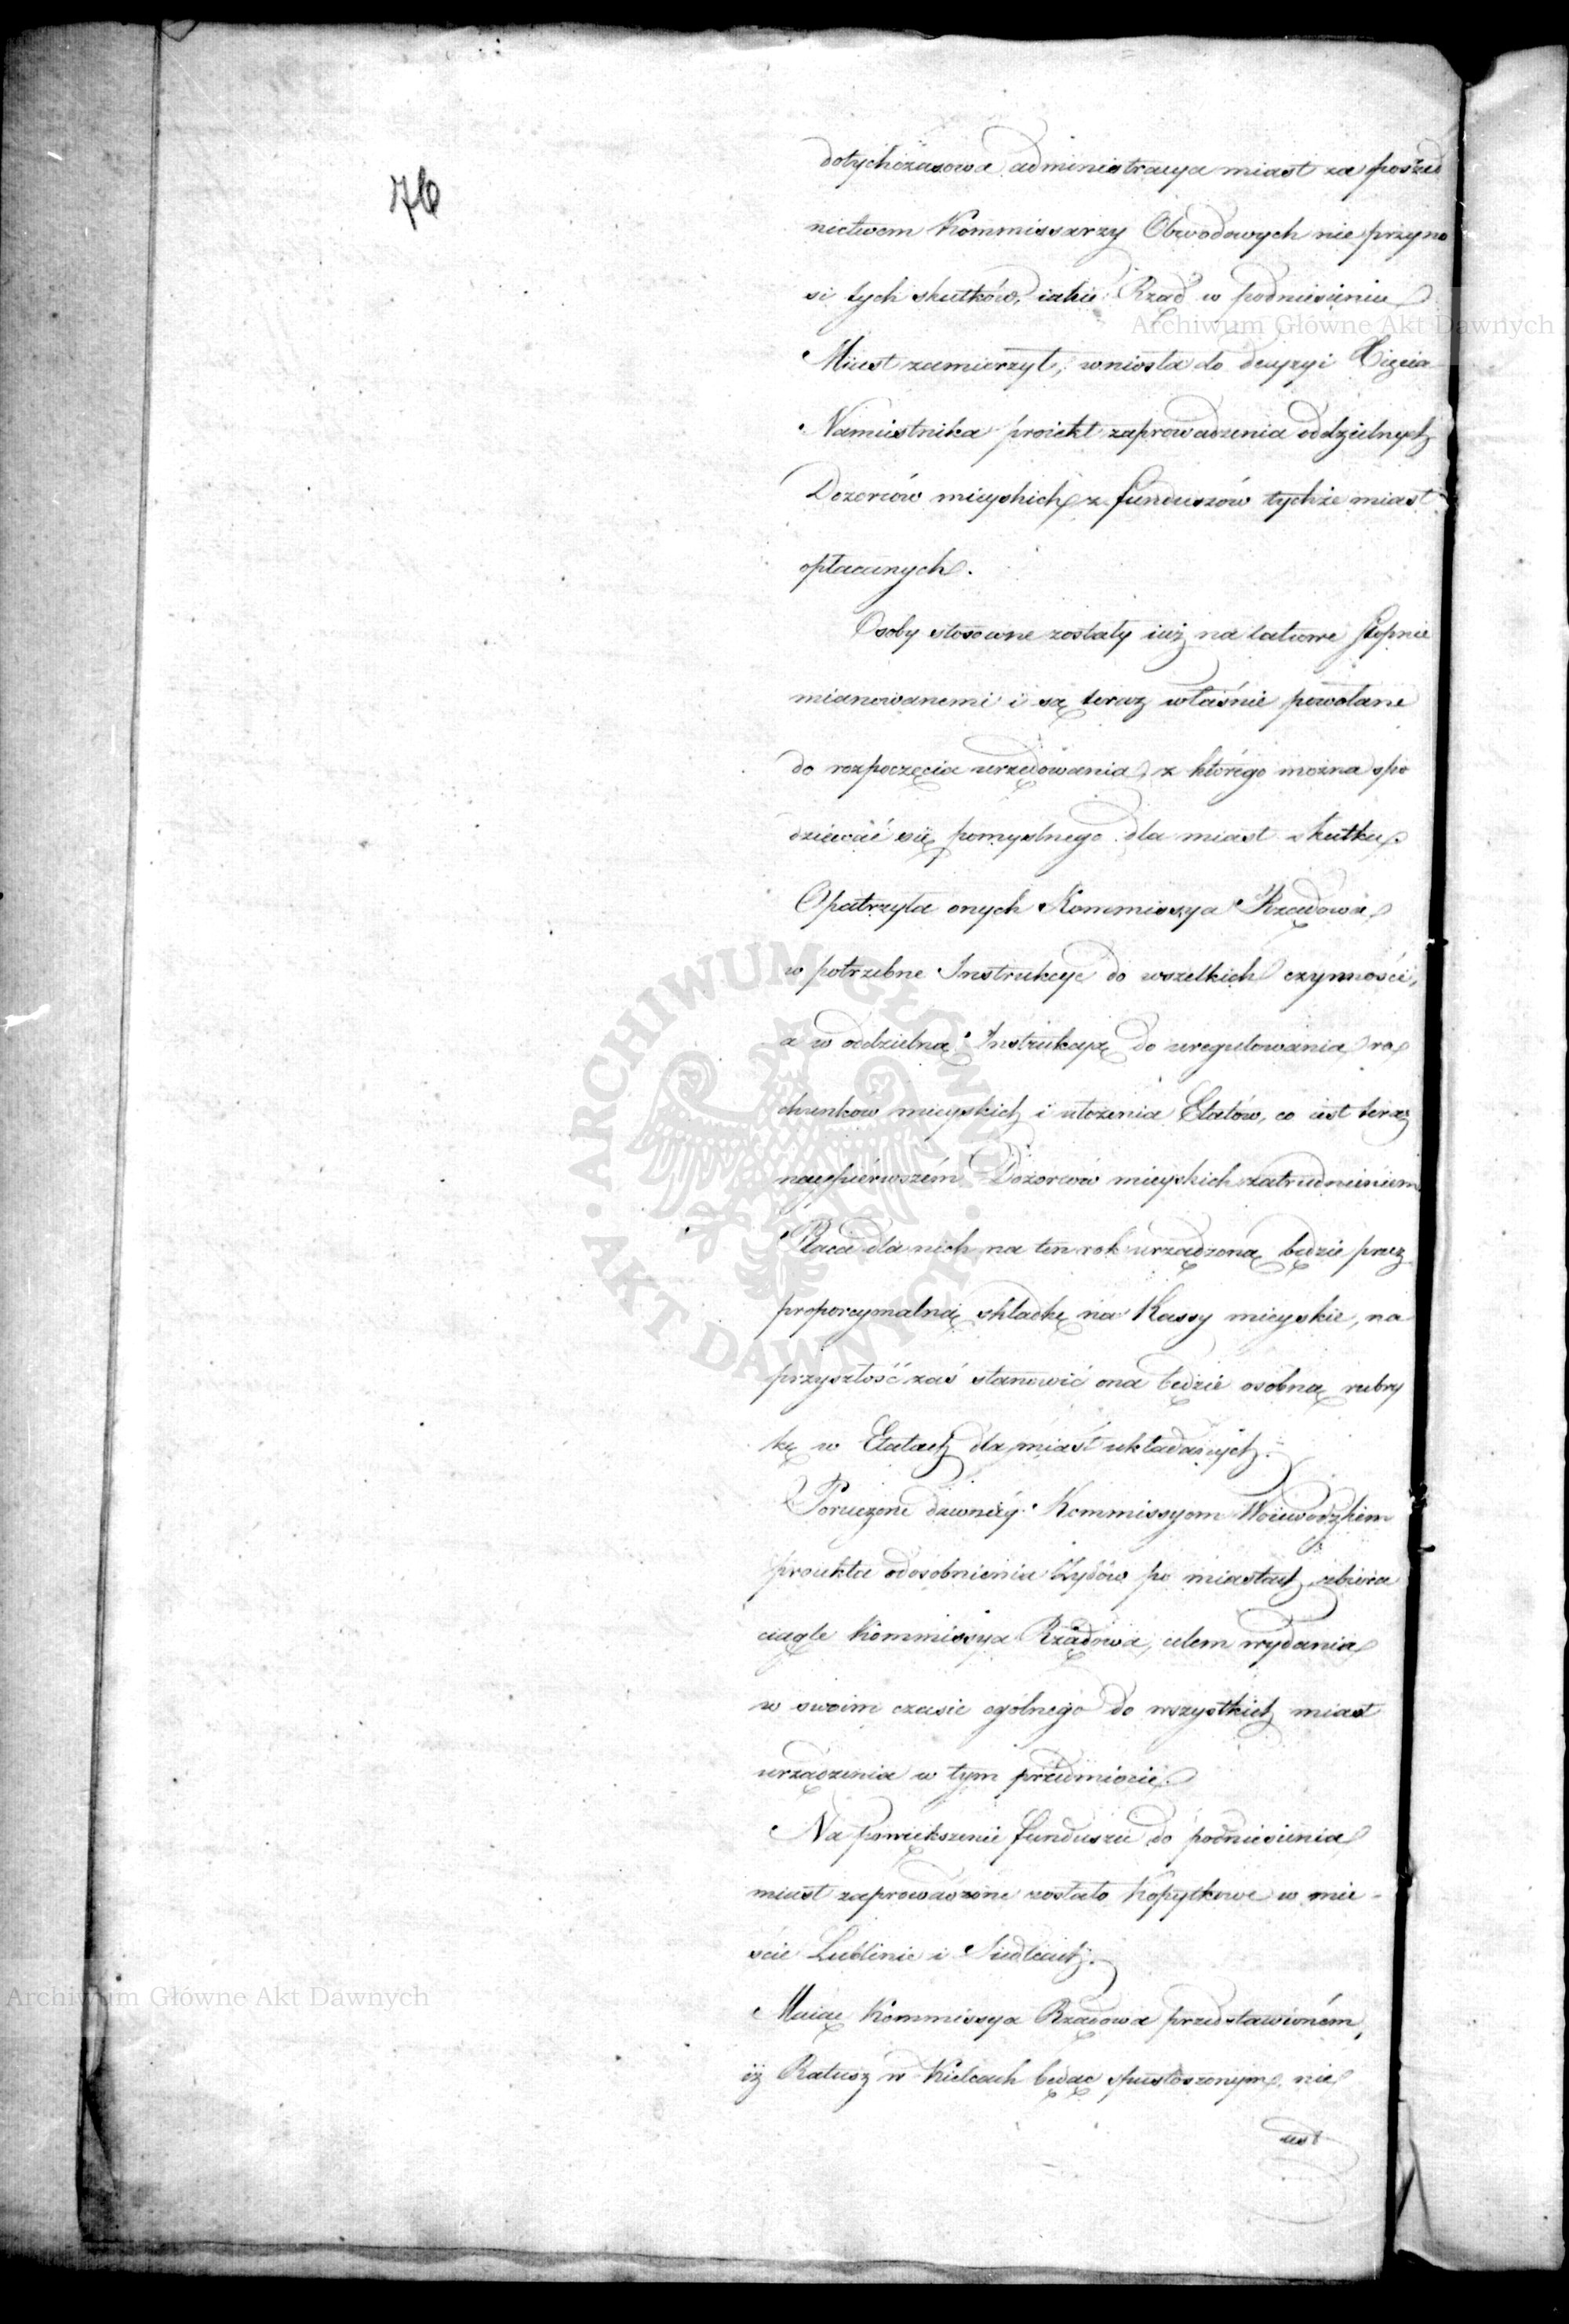 76
dotychczasowa administracya miast za pośred
nictwem Kommissarzy Obwodowych nie przyno
si tych skutków, iakie Rząd w podniesieniu
Miast zamierzył, wniosła do decyzyi Xięcia
Namiestnika proiekt zaprowadzenia oddzielnych
Dozorców mieyskich z funduszów tychże miast
opłacanych.
Osoby stosowne zostały iuż na takowe stopnie
mianowanemi i są teraz właśnie powołane
do rozpoczęcia urzędowania, z którego można spo
dziewać się pomyslnego dla miast skutku.
Opatrzyła onych Kommissya Rządowa
w potrzebne Instrukcye do wszelkich czynności,
a w oddzielną Instrukcyą do uregulowania ra
chunków mieyskich i ułożenia Etatów, co iest teraz
naypierwszém Dozorców mieyskich zatrudnieniem
Płaca dla nich na ten rok urządzoną będzie przez
proporcyonalną składkę na Kassy mieyskie, na
przyszłość zaś stanowić ona będzie osobną rubry
kę w Etatach dla miast układanych.
Poruczone dawniéy Kommissyom Woiewodzkim
proiekta odosobnienia Żydów po miastach zbiera
ciągle Kommissya Rządowa, celem wydania
w swoim czasie ogólnego do wszystkich miast
urządzenia w tym przedmiocie.
Na powiększenie funduszu do podniesienia
miast zaprowadzone zostało Kopytkowe w mie-
ście Lublinie i Siedlcach.
Maiąc Kommissya Rządowa przedstawioném,
iż Ratusz w Kielcach będąc spustoszonym, nie
iest
Archiwum Główne Akt Dawnych
ARCHIWUM GŁÓWNE · AKT DAWNYCH ·
Archiwum Główne Akt Dawnych